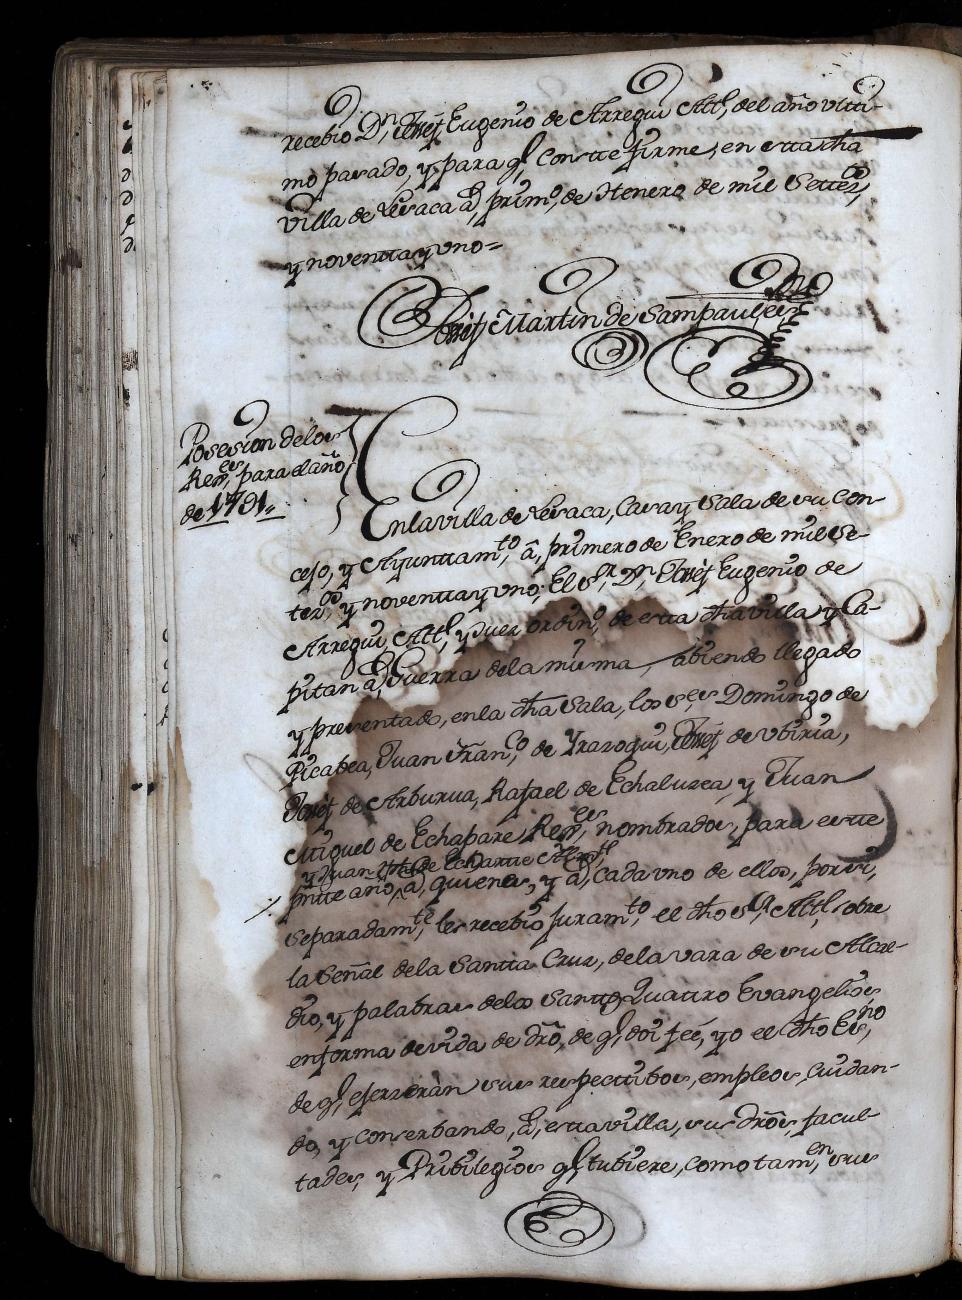 recebio Dn. Josef Eugenio de Arregui Alt., del año ulti-
mo pasado, y para q. conste firme, en esta dha
villa de Lesaca â, primo, de Henero de mil Setezos,
y noventa y uno=
Josef Martin de Sampaul, ess.no
Posesion delos
Res.es, para el año
de 1791.,,
En la villa de Lesaca, Casa y Sala de su Con-
cejo, y Ayuntam.to â, primero de Enero de mil Se-
tez.os y noventa y uno; El S.r D.n Josef Eugenio de
Arregui, Alt., y Juez ordin.o, de esta dha villa y Ca-
pitan â, Guerra dela misma, abiendo llegado
y presentado, enla dha Sala, los s.es Domingo de
Picabea, Juan Fran.co de Yrazoqui, Josef de Ubiria,
Josef de Arburua, Rafael de Echaluzea, y Juan
Miguel de Echapare Res.es, nombrados, para este
y Juan de Echarte
pnte año, â, quienes, y â, cada uno de ellos, por si,
separadam.te, les recebio juram.to, el dho s.r Alt., sobre
la Señal dela Santa Cruz, dela vara de su Alcal-
dio, y palabras delos Santos Quatro Evangelios
enforma devida de dro, de q. doi feé, yo el dho Es.no,
de q. ejerzeràn sus respectibos, empleos, Cuidan-
do, y conserbando, â, esta villa, sus dros, facul-
tades, y Pribilegios q. tubiere, como tam.en, sus